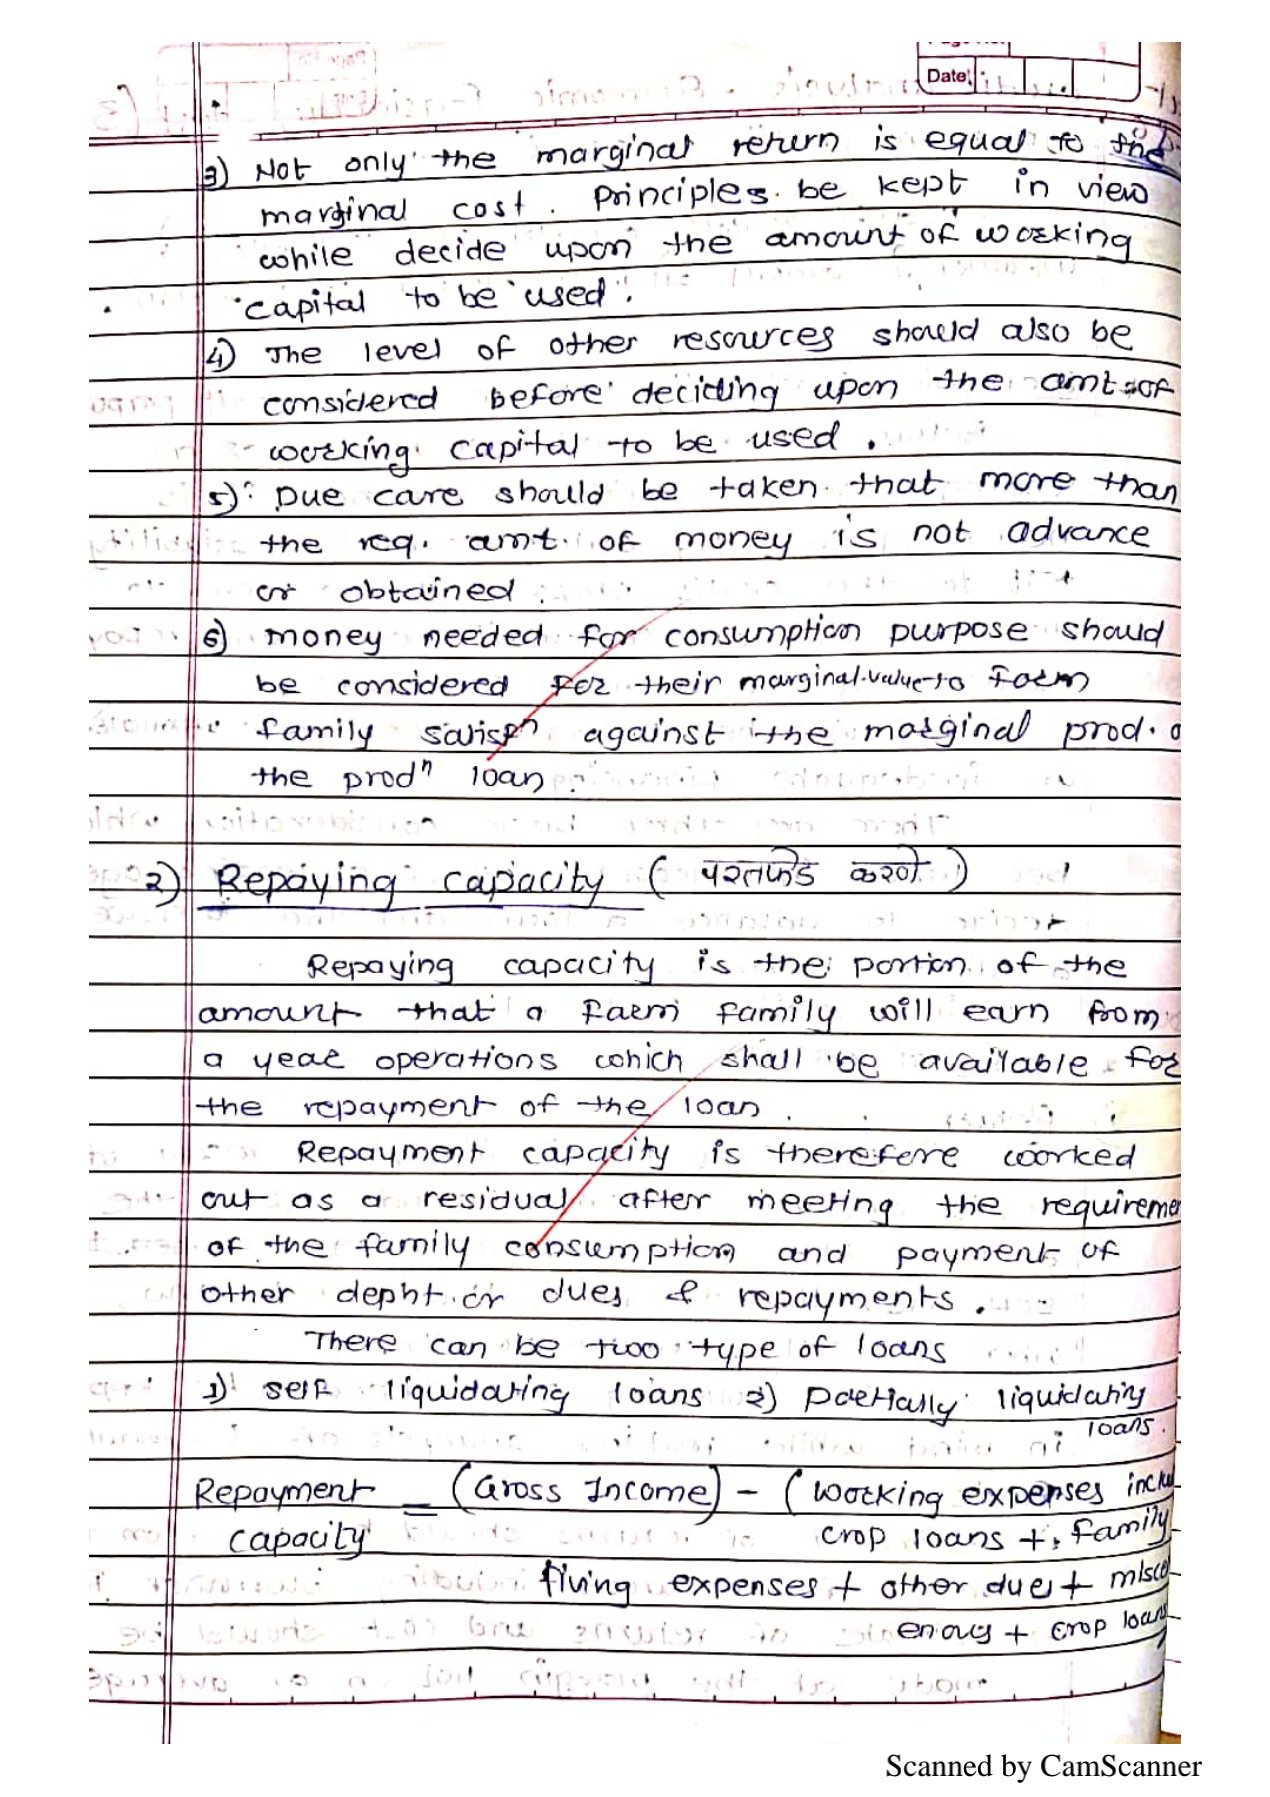 Date
3) Not only the marginal return is equal to the
marginal cost. Principles be kept in view
while decide upon the amount of working
capital to be used.
4) The level of other resources should also be
considered before deciding upon the amt of
working capital to be used.
5) Due care should be taken that more than
the req. amt. of money is not advance
or obtained.
6) money needed for consumption purpose should
be considered for their marginal value to farm
family satisfn against the marginal prod. o
the prodn loan.
2) Repaying capacity ( परतफेड करणे )
Repaying capacity is the portion of the
amount that a farm family will earn from
a year operations which shall be available for
the repayment of the loan.
Repayment capacity is therefere worked
out as a residual after meeting the requireme
of the family consumption and payment of
other depht or dues & repayments.
There can be two type of loans
1) self liquidating loans 2) Partially liquidating
loans.
Repayment = (Gross Income) - (working expenses inclu
capacity crop loans + family
living expenses + other dues + misce
enous + crop loans
Scanned by CamScanner